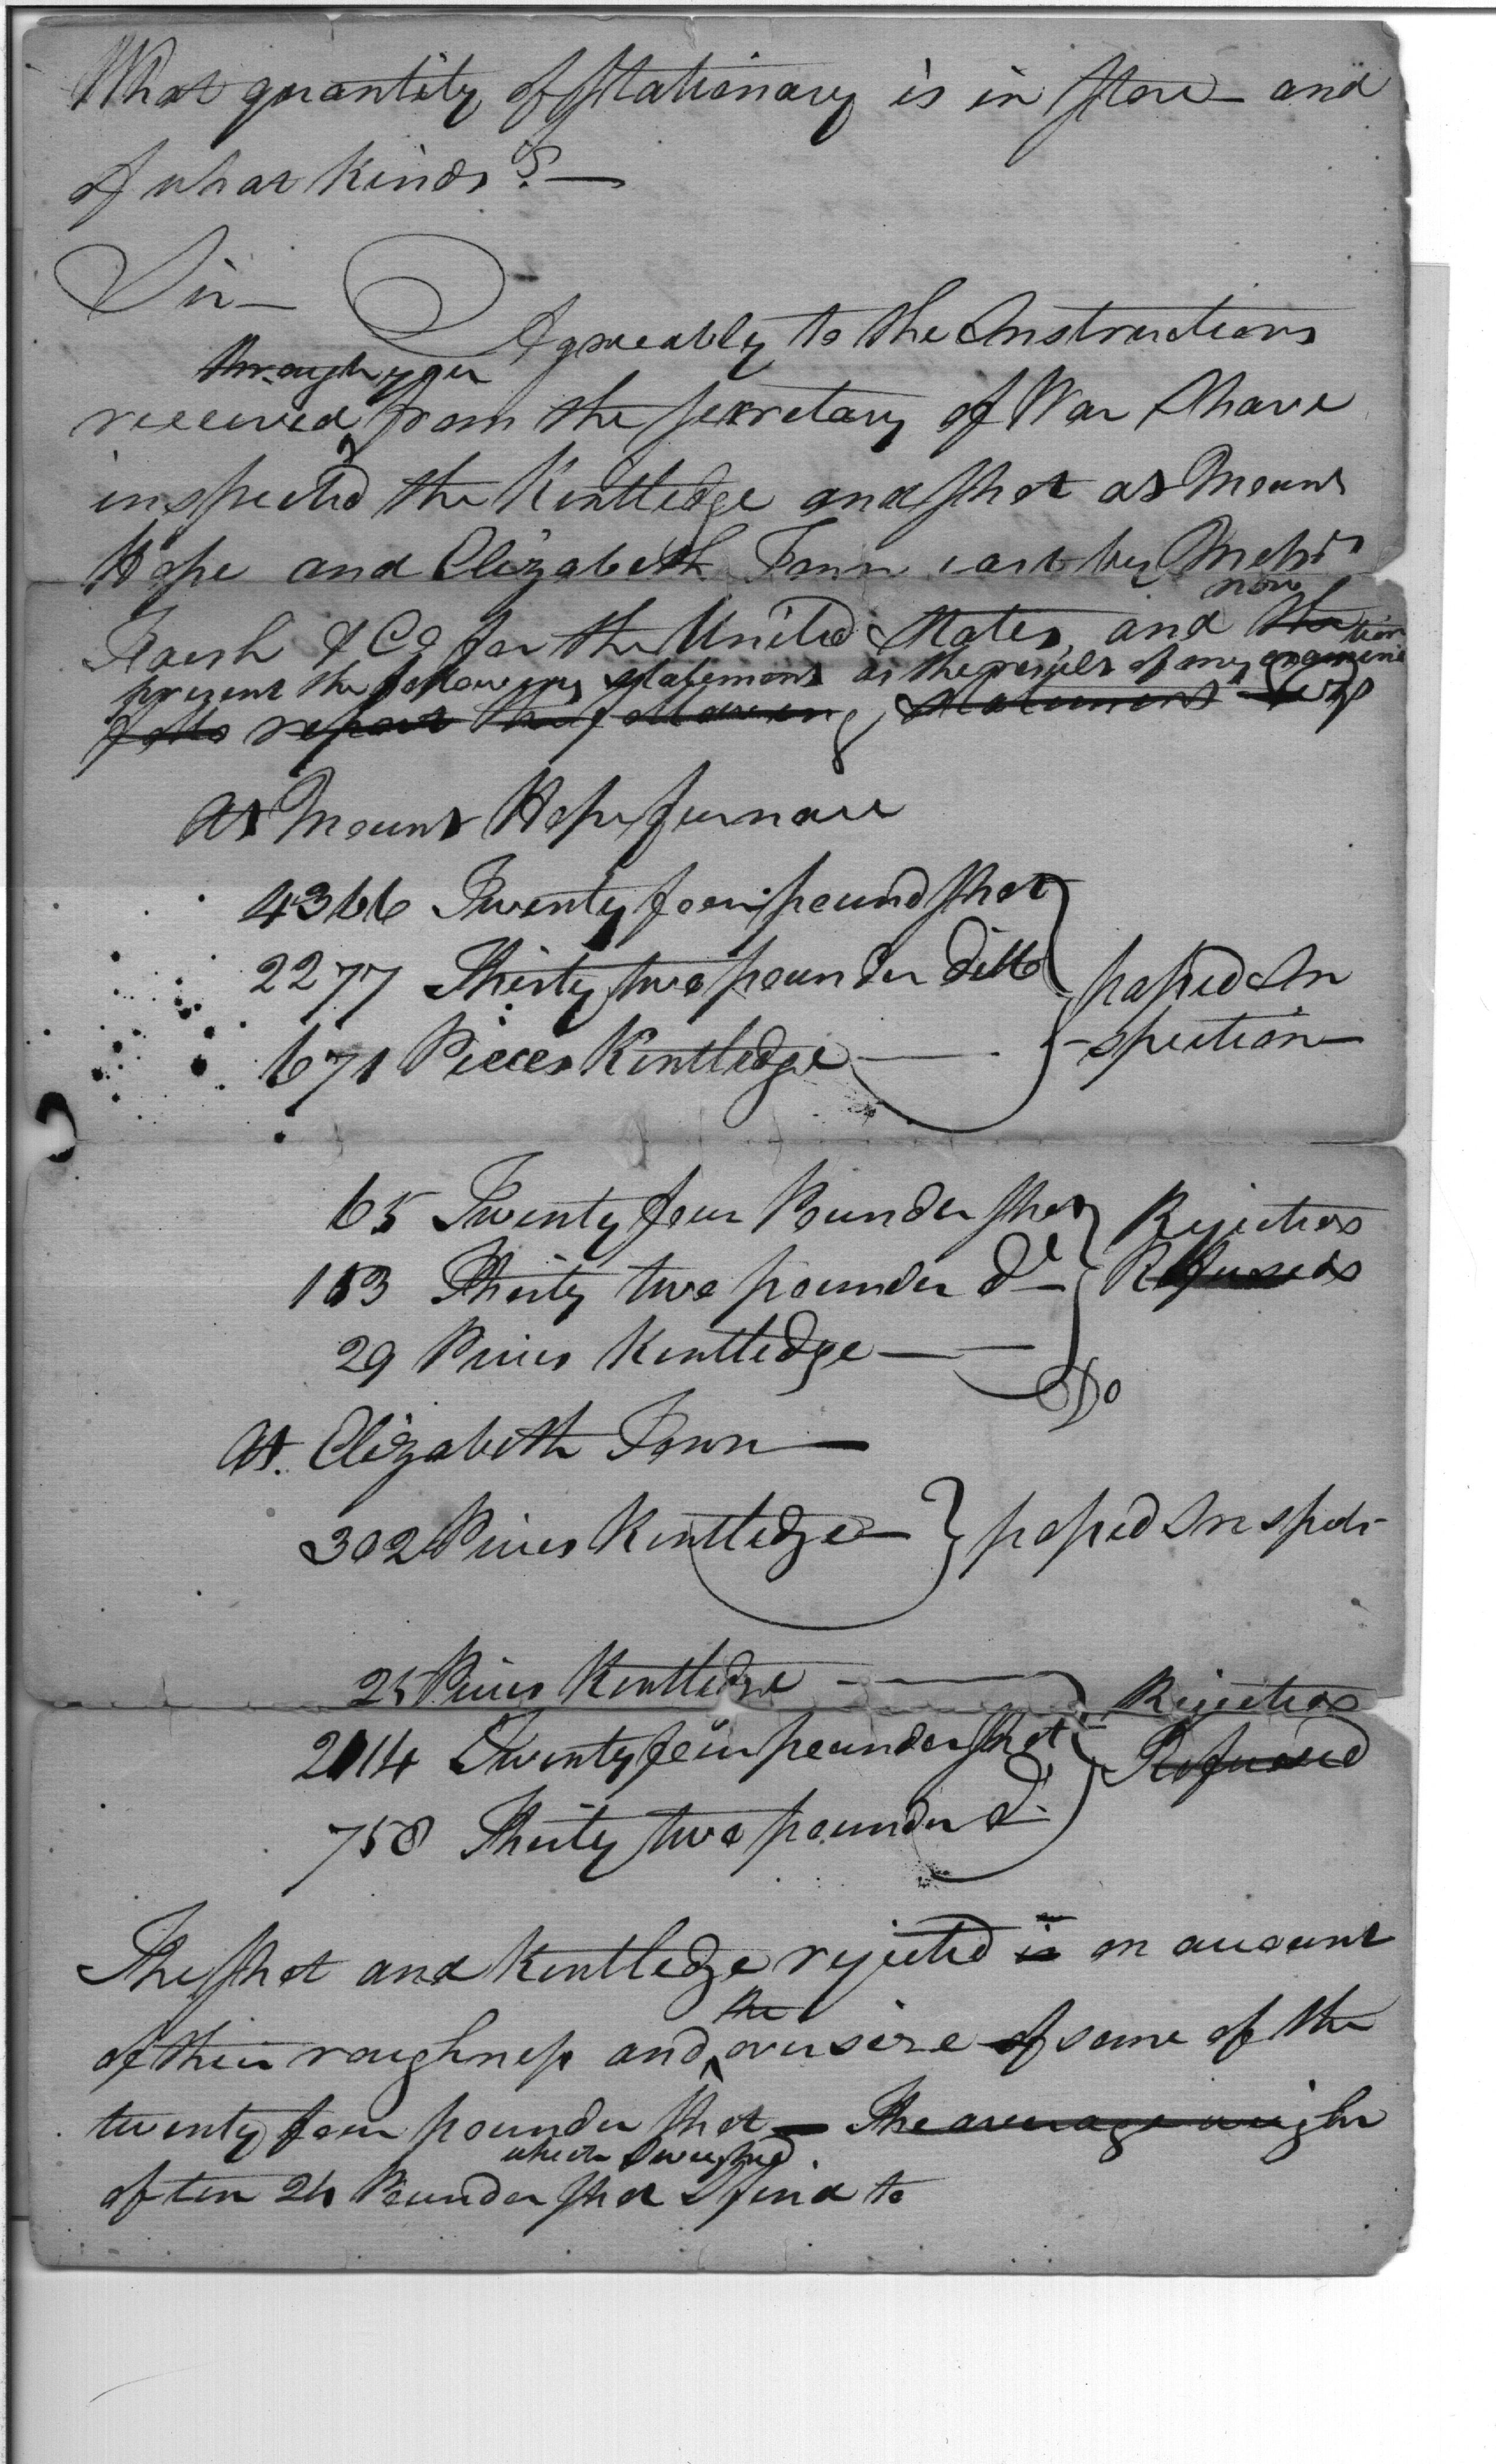 What quantity of Stationary is in Store and
of what kinds? —
Sir — Agreeably to the Instructions
through you
received from the Secretary of War I have
inspected the Kentledge and Shot at Mount
Hope and Elizabeth Town cast by Messrs
now
Faesh & Co for the United States, and the
tion
present the following statement as the result of my examina
report the following Statement
At Mount Hope furnace
4366 Twenty four pound Shot
2277 Thirty two pounder ditto } passed In
671 Pieces Kentledge — spection
65 Twenty four Pounder Shot } Rejected
153 Thirty two pounder do — Refused
29 Pieces Kentledge — Do
At Elizabeth Town —
302 Pieces Kentledge — } passed Inspecti
25 Pieces Kentledge — Rejected
2014 Twenty four pounder Shot } Refused
758 Thirty two pounder do
The Shot and Kentledge rejected is on account
the
of their roughness and over size of some of the
twenty four pounder Shot — The average weight
which I weighed
of ten 24 Pounder Shot I find to